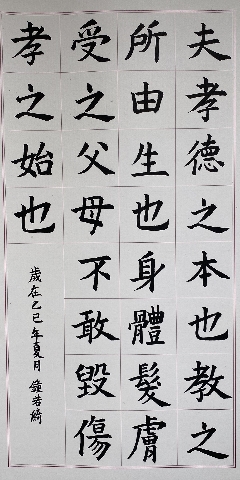 夫孝德之本也教之
所由生也身體髮膚
受之父母不敢毀傷
孝之始也
歲在乙巳年夏月 鐘若綺